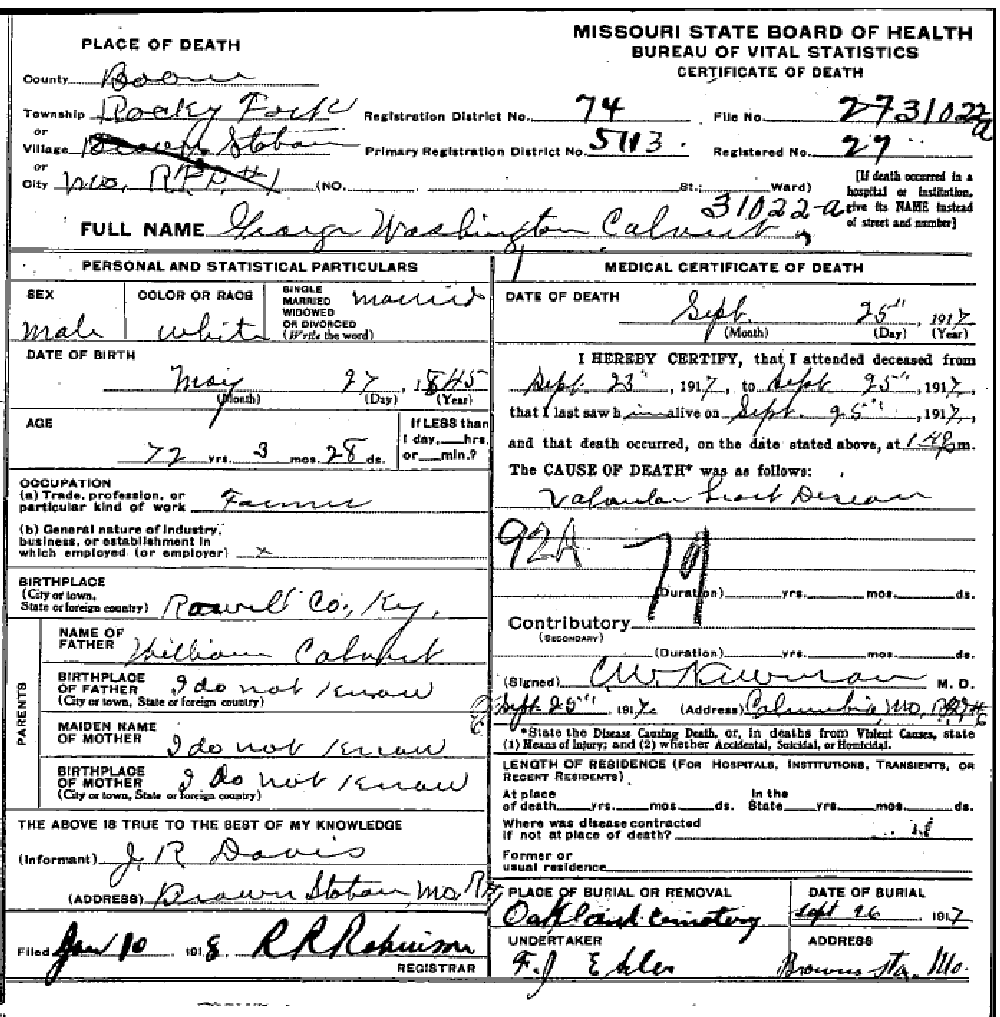 MISSOURI STATE BOARD OF HEALTH
BUREAU OF VITAL STATISTICS
CERTIFICATE OF DEATH
PLACE OF DEATH
County Boone
Township Rocky Fork
or
Village Browns Station
or
City Mo, R.F.D. #1 (NO. St.; Ward)
Registration District No. 74
Primary Registration District No. 5113
File No. 27 31022 a
Registered No. 27
[If death occurred in a
hospital or institution,
give its NAME instead
of street and number]
31022-a
FULL NAME George Washington Calvert
PERSONAL AND STATISTICAL PARTICULARS
SEX
male
COLOR OR RACE
white
SINGLE
MARRIED
WIDOWED
OR DIVORCED
(Write the word)
married
DATE OF BIRTH
May 27, 1845
(Month) (Day) (Year)
AGE
72 yrs. 3 mos. 28 ds.
If LESS than
1 day, hrs.
or min.?
OCCUPATION
(a) Trade, profession, or
particular kind of work Farmer
(b) General nature of Industry,
business, or establishment in
which employed (or employer) x
BIRTHPLACE
(City or town,
State or foreign country) Co., Ky.
PARENTS
NAME OF
FATHER William Calvert
BIRTHPLACE
OF FATHER I do not know
(City or town, State or foreign country)
MAIDEN NAME
OF MOTHER I do not know
BIRTHPLACE
OF MOTHER I do not know
(City or town, State or foreign country)
THE ABOVE IS TRUE TO THE BEST OF MY KNOWLEDGE
(Informant) J. R Davis
(ADDRESS) Brown Station, Mo R#1
Filed Jan 10 1918 R R Robinson
REGISTRAR
MEDICAL CERTIFICATE OF DEATH
DATE OF DEATH
Sept. 25", 1917
(Month) (Day) (Year)
I HEREBY CERTIFY, that I attended deceased from
Sept. 23", 1917, to Sept 25", 1917,
that I last saw him alive on Sept. 25", 1917,
and that death occurred, on the date stated above, at m.
The CAUSE OF DEATH* was as follows:
Valvular heart Disease
92A 79
(Duration) yrs. mos. ds.
Contributory
(SECONDARY)
(Duration) yrs. mos. ds.
(Signed) M. D.
Sept. 25" 1917. (Address) Columbia, Mo,
*State the Disease Causing Death, or, in deaths from Violent Causes, state
(1) Means of Injury; and (2) whether Accidental, Suicidal, or Homicidal.
LENGTH OF RESIDENCE (FOR HOSPITALS, INSTITUTIONS, TRANSIENTS, OR
RECENT RESIDENTS)
At place
of death yrs. mos. ds.
In the
State yrs. mos. ds.
Where was disease contracted
if not at place of death?
Former or
usual residence
PLACE OF BURIAL OR REMOVAL
Oakland Cemetery
DATE OF BURIAL
Sept 26 1917
UNDERTAKER
F. J
ADDRESS
Browns Sta. Mo.